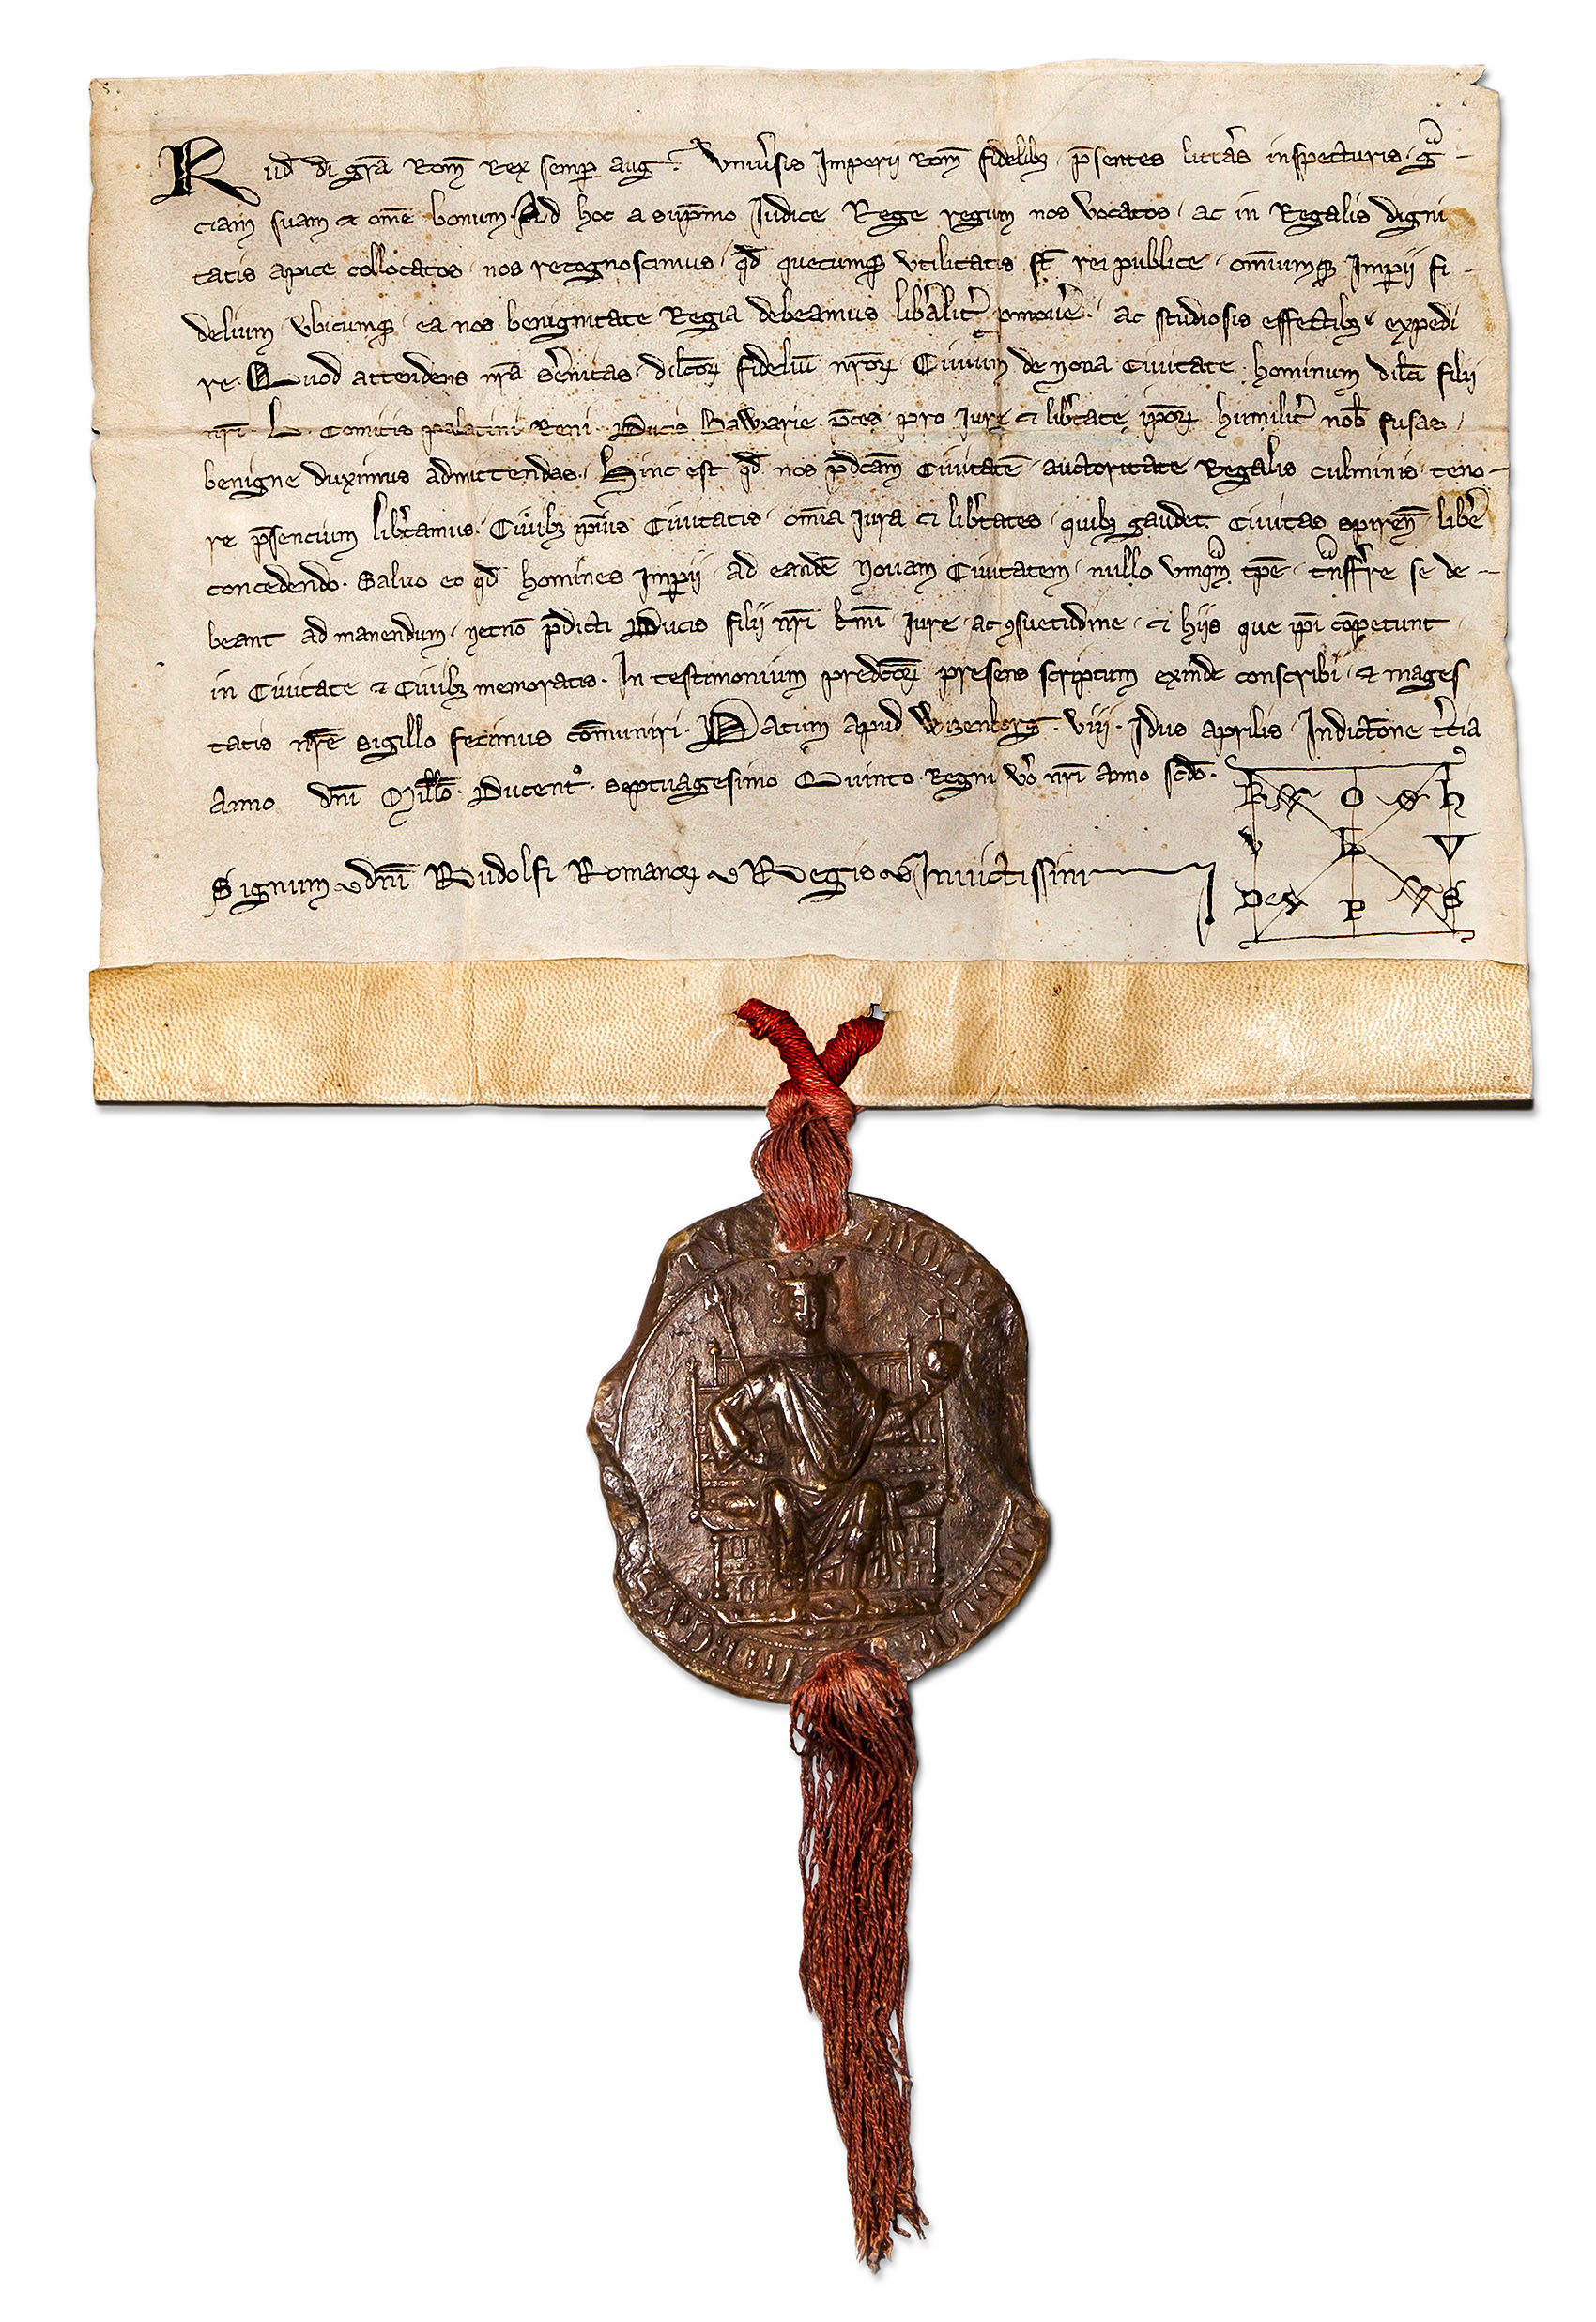 Rud di gr̄a Rom̄ Rex semp aug. Vniu̾sis Imperii Rom̄ fidelibȝ p̄sentes litt̾as inspecturis gr̄a
ciam suam ⁊ om̄e bonum. Ad hoc a sup̄mo Iudice Rege regum nos vocatos ac in Regalis digni
tatis apice collocatos nos recognoscimus qd̄ quecumqꝫ vtilitatis st̄ rei publice omīumqꝫ Imp̄ii fi
delium vbicumqꝫ ea nos benignitate Regia debeamus lib̾alit̾ ꝓmou̾e ac studiosis effectibȝ expedi
re. Quod attendens nr̄a Ser̾enitas dilc̄orꝝ fideliū nr̄orꝝ Ciuium de noua Ciuitate hominum dilc̄i filii
nr̄i L. Comitis palatini Reni Ducis Bawarie p̄ces pro Iure ⁊ lib̾tate ip̄orꝝ humilit̾ nob̄ fusas
benigne duximus admittendas. Hinc est qd̄ nos p̄dc̄am Ciuitatē auctoritate Regalis culminis teno
re p̄sencium lib̾tamus. Ciuibȝ ip̄ius Ciuitatis om̄ia iura ⁊ lib̾tates quibȝ gaudet Ciuitas spiren̄ lib̾e
concedendo. Saluo eo qd̄ homines Imp̄ii ad eandē nouam Ciuitatem nullo vmqm̄ tp̄e tn̄sff̾re se de
beant ad manendum necnō p̄dicti Ducis filii nr̄i km̄i Iure ac ꝯsuetudine ⁊ hiis que ip̄i cōpetunt
in Ciuitate ⁊ Ciuibȝ memoratis. In testimonium predc̄orꝝ presens scriptum exinde conscribi ⁊ mages
tatis nr̄e sigillo fecimus cōmuniri. Datum apud Wizenborg viii Idus aprilis Indictōne t̾cia
Anno dn̄i Mill̄o. Ducent°. septuagesimo Quinto. Regni v̾o nr̄i anno scd̄o.
Signum dn̄i Rudolfi Romanorꝝ Regis Inuictissimi